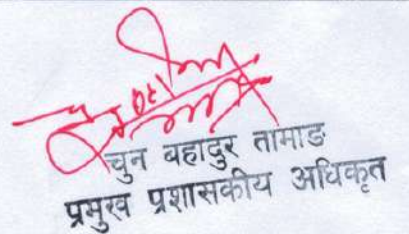 चुन बहादुर तामाङ
प्रमुख प्रशासकीय अधिकृत